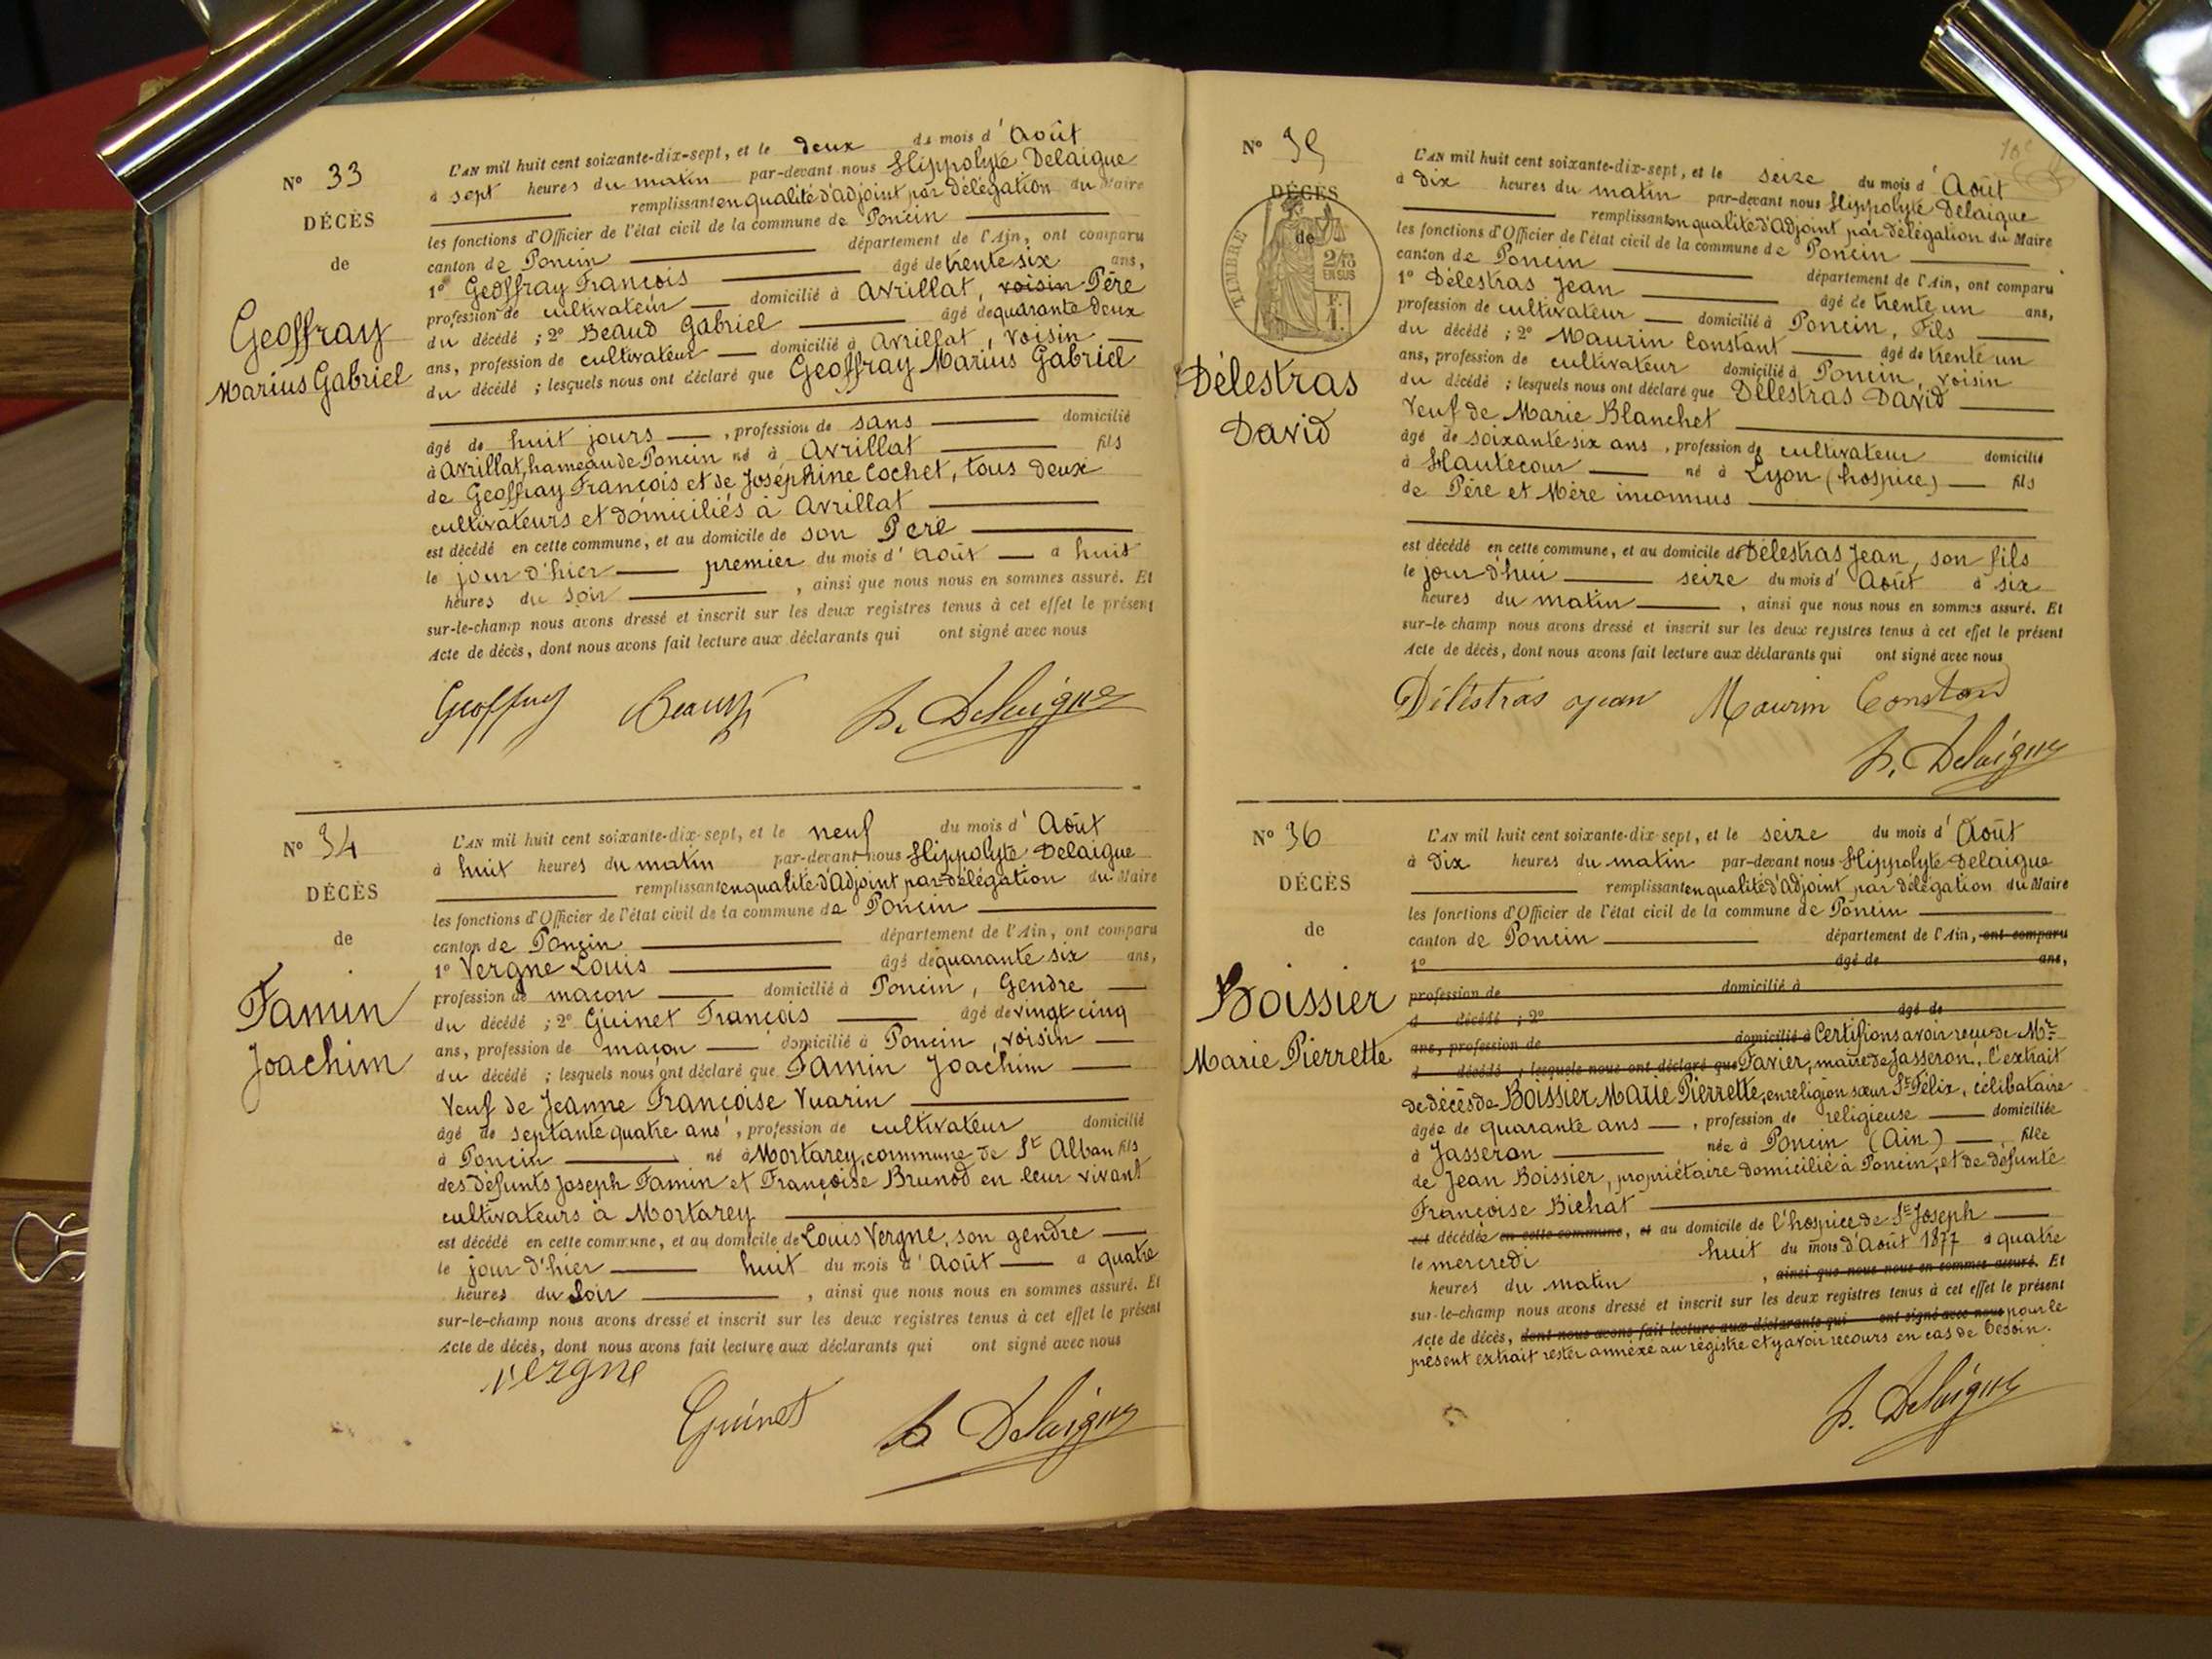 N° 33
DÉCÈS
de
Geoffray
Marius Gabriel
L'AN mil huit cent soixante-dix-sept, et le deux du mois d'Août
à sept heures du matin par-devant nous Hippolyte Delaigue
remplissant en qualité d'adjoint par délégation du Maire
les fonctions d'Officier de l'état civil de la commune de Poncin
canton de Poncin département de l'Ain, ont comparu
1° Geoffray François âgé de trente six ans,
profession de cultivateur domicilié à Avrillat, voisin Père
du décédé ; 2° Beaud Gabriel âgé de quarante deux
ans, profession de cultivateur domicilié à Avrillat, voisin
du décédé ; lesquels nous ont déclaré que Geoffray Marius Gabriel
âgé de huit jours, profession de sans domicilié
à Avrillat, hameau de Poncin né à Avrillat fils
de Geoffray François et de Joséphine Cochet, tous deux
cultivateurs et domiciliés à Avrillat
est décédé en cette commune, et au domicile de son Père
le jour d'hier premier du mois d'Août à huit
heures du soir, ainsi que nous nous en sommes assuré. Et
sur-le-champ nous avons dressé et inscrit sur les deux registres tenus à cet effet le présent
Acte de décès, dont nous avons fait lecture aux déclarants qui ont signé avec nous
Geoffray Beaud h. Delaigue
N° 34
DÉCÈS
de
Famin
Joachim
L'AN mil huit cent soixante-dix-sept, et le neuf du mois d'Août
à huit heures du matin par-devant nous Hippolyte Delaigue
remplissant en qualité d'Adjoint par délégation du Maire
les fonctions d'Officier de l'état civil de la commune de Poncin
canton de Poncin département de l'Ain, ont comparu
1° Vergne Louis âgé de quarante six ans,
profession de maçon domicilié à Poncin, Gendre
du décédé ; 2° Guinet François âgé de vingt cinq
ans, profession de maçon domicilié à Poncin, voisin
du décédé ; lesquels nous ont déclaré que Famin Joachim
Veuf de Jeanne Françoise Vuarin
âgé de septante quatre ans, profession de cultivateur domicilié
à Poncin né à Mortarey, commune de St Alban fils
des défunts Joseph Famin et Françoise Brunod en leur vivant
cultivateurs à Mortarey
est décédé en cette commune, et au domicile de Louis Vergne, son gendre
le jour d'hier huit du mois d'Août à quatre
heures du Soir, ainsi que nous nous en sommes assuré. Et
sur-le-champ nous avons dressé et inscrit sur les deux registres tenus à cet effet le présent
Acte de décès, dont nous avons fait lecture aux déclarants qui ont signé avec nous
Vergne
Guinet h Delaigue
N° 35
DÉCÈS
de
TIMBRE
2/10
EN SUS
Délestras
David
L'AN mil huit cent soixante-dix-sept, et le seize du mois d'Août
à Dix heures du matin par-devant nous Hippolyte Delaigue
remplissant en qualité d'Adjoint par délégation du Maire
les fonctions d'Officier de l'état civil de la commune de Poncin
canton de Poncin département de l'Ain, ont comparu
1° Délestras Jean âgé de trente un ans,
profession de cultivateur domicilié à Poncin, Fils
du décédé ; 2° Maurin Constant âgé de trente un
ans, profession de cultivateur domicilié à Poncin, voisin
du décédé ; lesquels nous ont déclaré que Délestras David
Veuf de Marie Blanchet
âgé de soixante six ans, profession de cultivateur domicilié
à Hautecour né à Lyon (hospice) fils
de Père et Mère inconnus
est décédé en cette commune, et au domicile de Délestras Jean, son fils
le jour d'hui seize du mois d'Août à six
heures du matin, ainsi que nous nous en sommes assuré. Et
sur-le-champ nous avons dressé et inscrit sur les deux registres tenus à cet effet le présent
Acte de décès, dont nous avons fait lecture aux déclarants qui ont signé avec nous
Déléstras Jean Mourin Constand
h. Delaigue
N° 36
DÉCÈS
de
Boissier
Marie Pierrette
L'AN mil huit cent soixante-dix-sept, et le seize du mois d'Août
à Dix heures du matin par-devant nous Hippolyte Delaigue
remplissant en qualité d'Adjoint par délégation du Maire
les fonctions d'Officier de l'état civil de la commune de Poncin
canton de Poncin département de l'Ain, ont comparu
1° âgé de ans,
profession de domicilié à
d décédé ; 2° âgé de
ans, profession de domicilié à Certifions avoir reçu de Mr
d décédé ; lesquels nous ont déclaré que Favier, maire de Jasseron, l'extrait
de décès de Boissier Marie Pierrette, en religion sœur St Félix, célibataire
âgée de quarante ans, profession de religieuse domiciliée
à Jasseron née à Poncin (Ain), fille
de Jean Boissier, propriétaire domicilié à Poncin, et de défunte
Françoise Bichat
est décédée en cette commune, et au domicile de l'hospice de St Joseph
le mercredi huit du mois d'Août 1877 à quatre
heures du matin, ainsi que nous nous en sommes assuré. Et
sur-le-champ nous avons dressé et inscrit sur les deux registres tenus à cet effet le présent
Acte de décès, dont nous avons fait lecture aux déclarants qui ont signé avec nous pour le
présent extrait rester annexé au régistre et y avoir recours en cas de besoin.
h. Delaigue